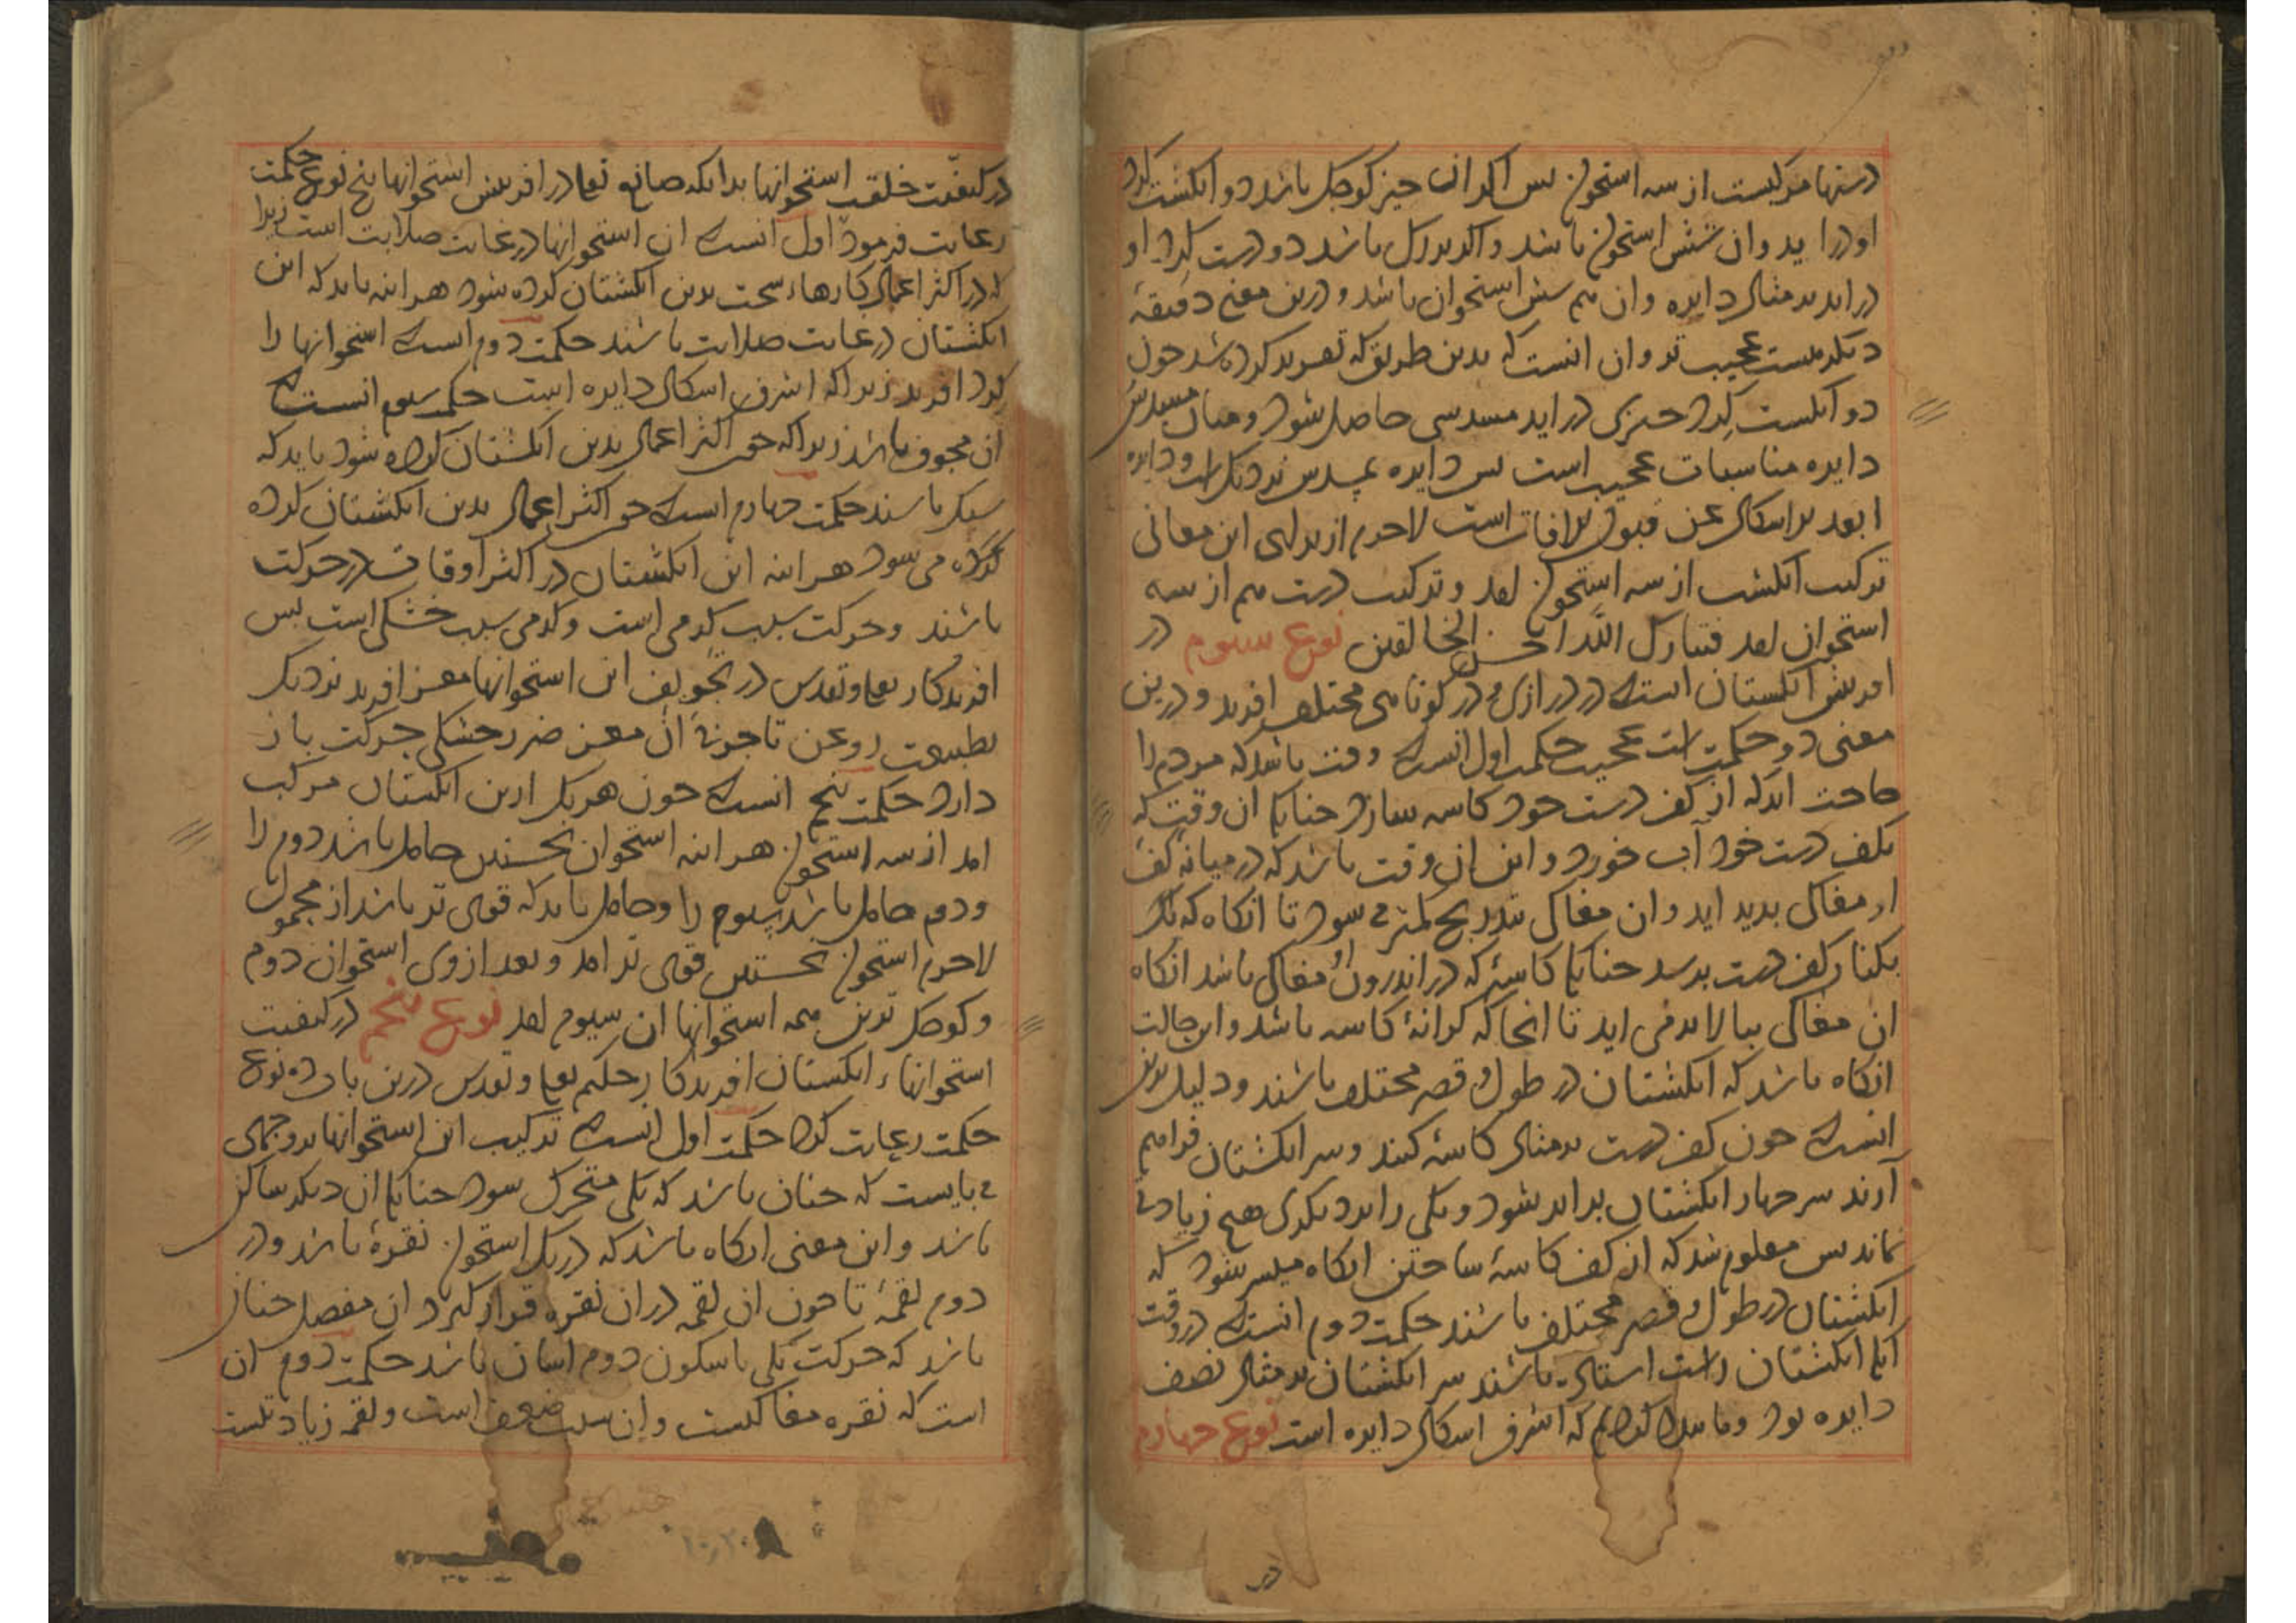 دستها مرکبست از سه استخوان پس اکر ان چیز کوچک باشد دو انکشت کرد
او درآید وان شش استخوان باشد واکر بزرک باشد دو دست کرد او
دراید بر مثال دایره وان هم شش استخوان باشد و درین معنی دقیقهٔ
دیکر هست عجیب تر وان انست که بدین طریق که تقریر کرده شد چون
دو انکشت کرد چیزی دراید مسدسی حاصل شود ومیان مسدس
دایره مناسبات عجیب است پس دایره بمسدس نزدیک است ودایره
ابعد بر اشکال عن قبول الافات است لاجرم از برای این معانی
ترکیب انکشت از سه استخوان امد وترکیب دست هم از سه
استخوان امد فتبارک الله احسن الخالقین نوع سیوم در
افرینش انکشتان انست که در درازی و در کوتاهی مختلف افرید ودرین
معنی دو حکمت است عجیب حکمت اول انست که وقت باشد که مردم را
حاجت اید که از کف دست خود کاسه سازد چنانکه ان وقت که
بکف دست خود آب خورد و این ان وقت باشد که در میانه کف
او مغاکی بدید اید وان مغاکی بتدریج کمتر می شود تا انکاه که
بکنار کف دست برسد چنانکه کاسهٔ که در اندرون او مغاکی باشد انکاه
ان مغاکی ببالا برمی اید تا انجا که کرانهٔ کاسه باشد واین حالت
انکاه باشد که انکشتان در طول و قصر مختلف باشند ودلیل برین
انست که چون کف دست بر مثال کاسهٔ کنند وسر انکشتان فراهم
آرند سر چهار انکشتان برابر شود ویکی را بر دیکری هیچ زیادتی
نماند پس معلوم شد که از کف کاسهٔ ساختن انکاه میسر شود که
انکشتان در طول و قصر مختلف باشند حکمت دوم انست که در وقت
آنکه انکشتان راست استاده باشند سر انکشتان بر مثال نصف
دایره بود وما بیان کردیم که اشرف اشکال دایره است نوع چهارم
در
در کیفیت خلقت استخوانها بدانکه صانع تعالی در افرینش استخوانها پنج نوع حکمت
رعایت فرمود اول انست که ان استخوانها در غایت صلابت است زیرا
که در اکثر اعمال کارهاء سخت بدین انکشتان کرده شود هر اینه باید که این
انکشتان در غایت صلابت باشند حکمت دوم انست که استخوانها را
کرد افرید زیراکه اشرف اشکال دایره است حکمت سیوم انست که
ان مجوف باشد زیراکه چون اکثر اعمال بدین انکشتان کرده شود باید که
سبک باشند حکمت چهارم انست که چون اکثر اعمال بدین انکشتان کرده
کرده می شود هر اینه این انکشتان در اکثر اوقات در حرکت
باشند وحرکت سبب کرمی است وکرمی سبب خشکی است پس
افریدکار تعالی وتقدس در تجویف این استخوانها مغز افرید نزدیک
بطبیعت روغن تا چربی آن مغز ضرر خشکی حرکت باز
دارد حکمت پنجم انست که چون هر یک ازین انکشتان مرکب
امد از سه استخوان هر اینه استخوان نخستین حامل باشد دوم را
ودوم حامل باشد سیوم را وحامل باید که قوی تر باشد از محمول
لاجرم استخوان نخستین قوی تر امد وبعد از وی استخوان دوم
وکوچک ترین همه استخوانها ان سیوم امد نوع پنجم در کیفیت
استخوانهاء انکشتان افریدکار حکیم تعالی وتقدس درین باب ده نوع
حکمت رعایت کرد حکمت اول انست که ترکیب این استخوانها بر وجهی
می بایست که چنان باشد که یکی متحرک شود چنانکه ان دیکر ساکن
باشد واین معنی انکاه باشد که در یک استخوان نقرهٔ باشد ودر
دوم لقمهٔ تا چون ان لقمه در ان نقره قرار کیرد ان مفصل چنان
باشد که حرکت یکی با سکون دوم اسان باشد حکمت دوم ان
است که نقره مغاکیست وان سبب ضعف است ولقمه زیادتیست